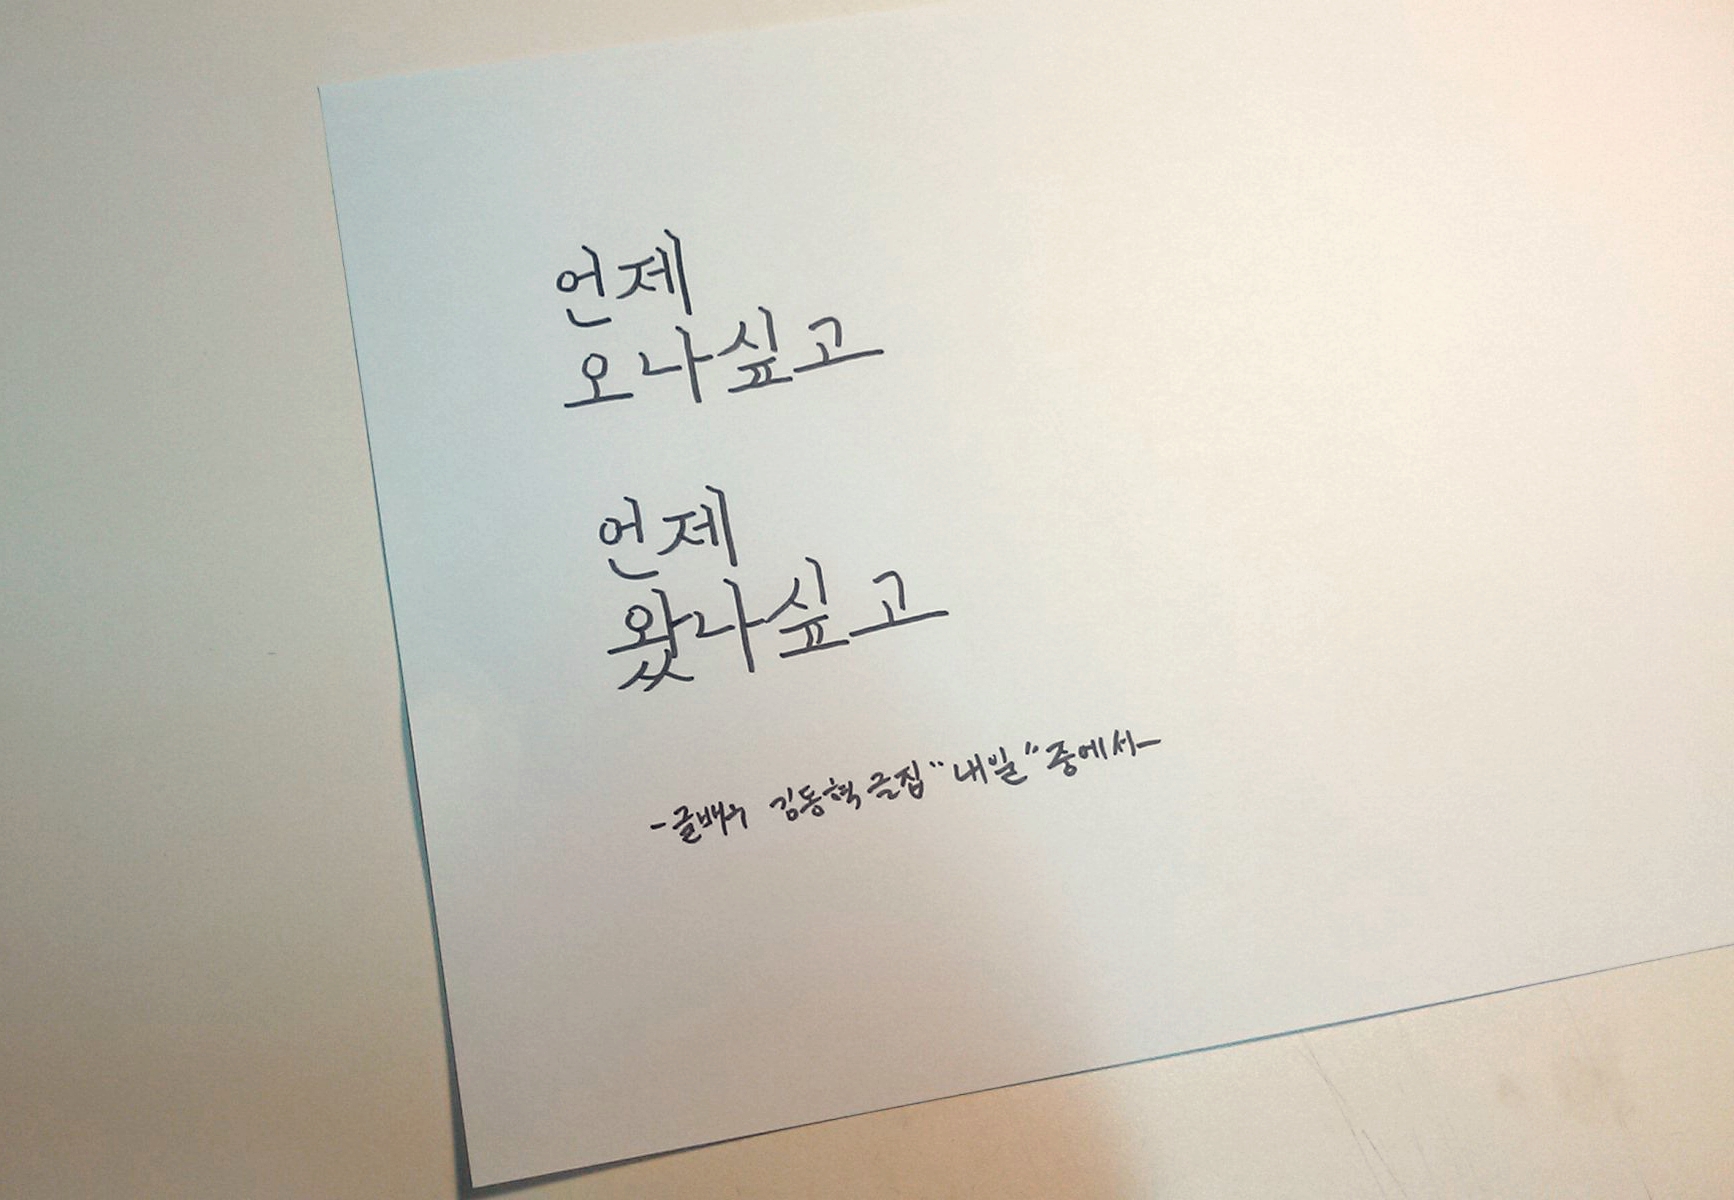 언제
오나싶고
언제
왔나싶고
-글배우 김동혁 글집 "내일" 중에서-